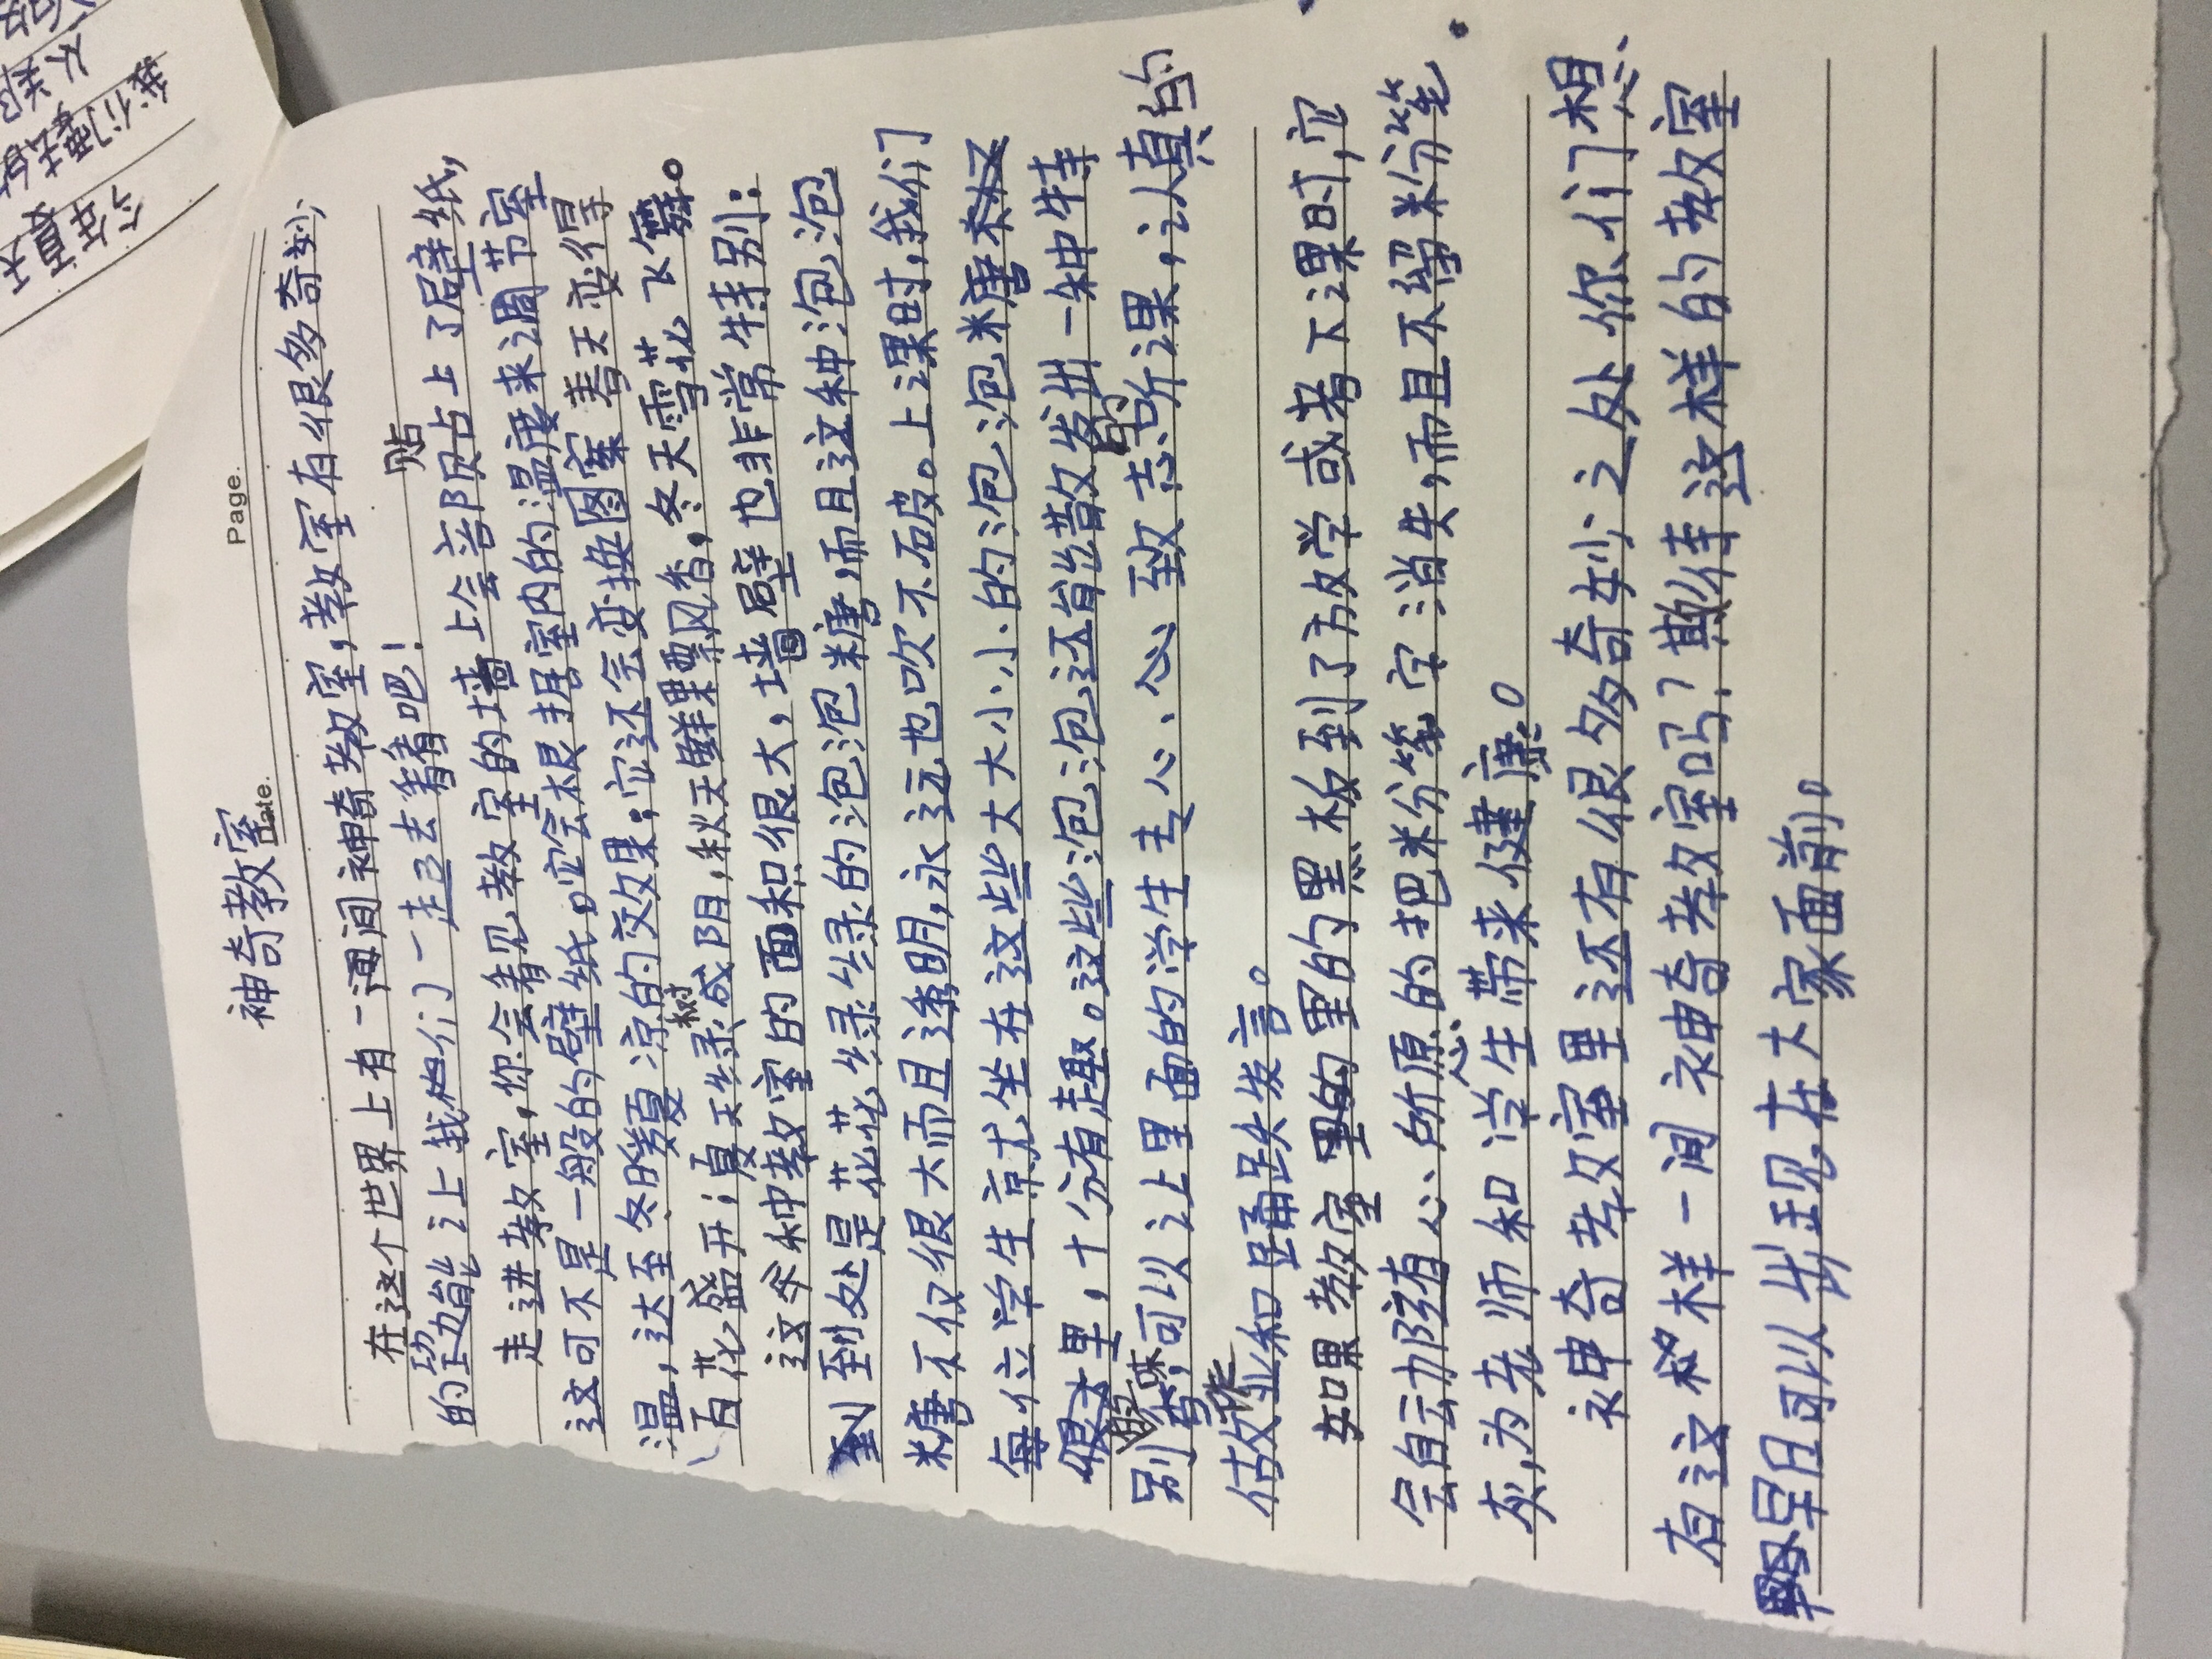 神奇教室
Date.
Page.
在这个世界上有一间神奇教室,教室有很多奇妙
的功能让我们一走己去看看吧!
贴
走进教室,你会看见教室的墙上会上了壁纸,
这可不是一般的壁纸。它会根据室内的温度来调节室
温,达至冬暖夏凉的效果;它还会变换图案春天变得
百花盛开;夏天绿树成阴,秋天鲜果飘香,冬天雪花飞舞。
这种教室的面积很大,墙壁也非常特别:
到处是花花绿绿的泡泡糖,而且这种泡泡
糖不仅很大而且透明,永远也吹不破。上课时,我们
每位学生就坐在这些大大小小的泡泡糖
里,十分有趣。这些泡泡还能散发出一种特
别香味,可以让里面的学生专心、心致志的听课,认真的
做作业和踊跃发言。
如果教室里的黑板到了放学或者下课时,它
会自动随有心所愿的把粉笔字消失,而且不留粉笔
灰,为老师和学生带来健康。
神奇教室里还有很多奇妙之处你们想
有这样一间神奇教室吗?期待这样的教室
早日可以出现在大家面前。